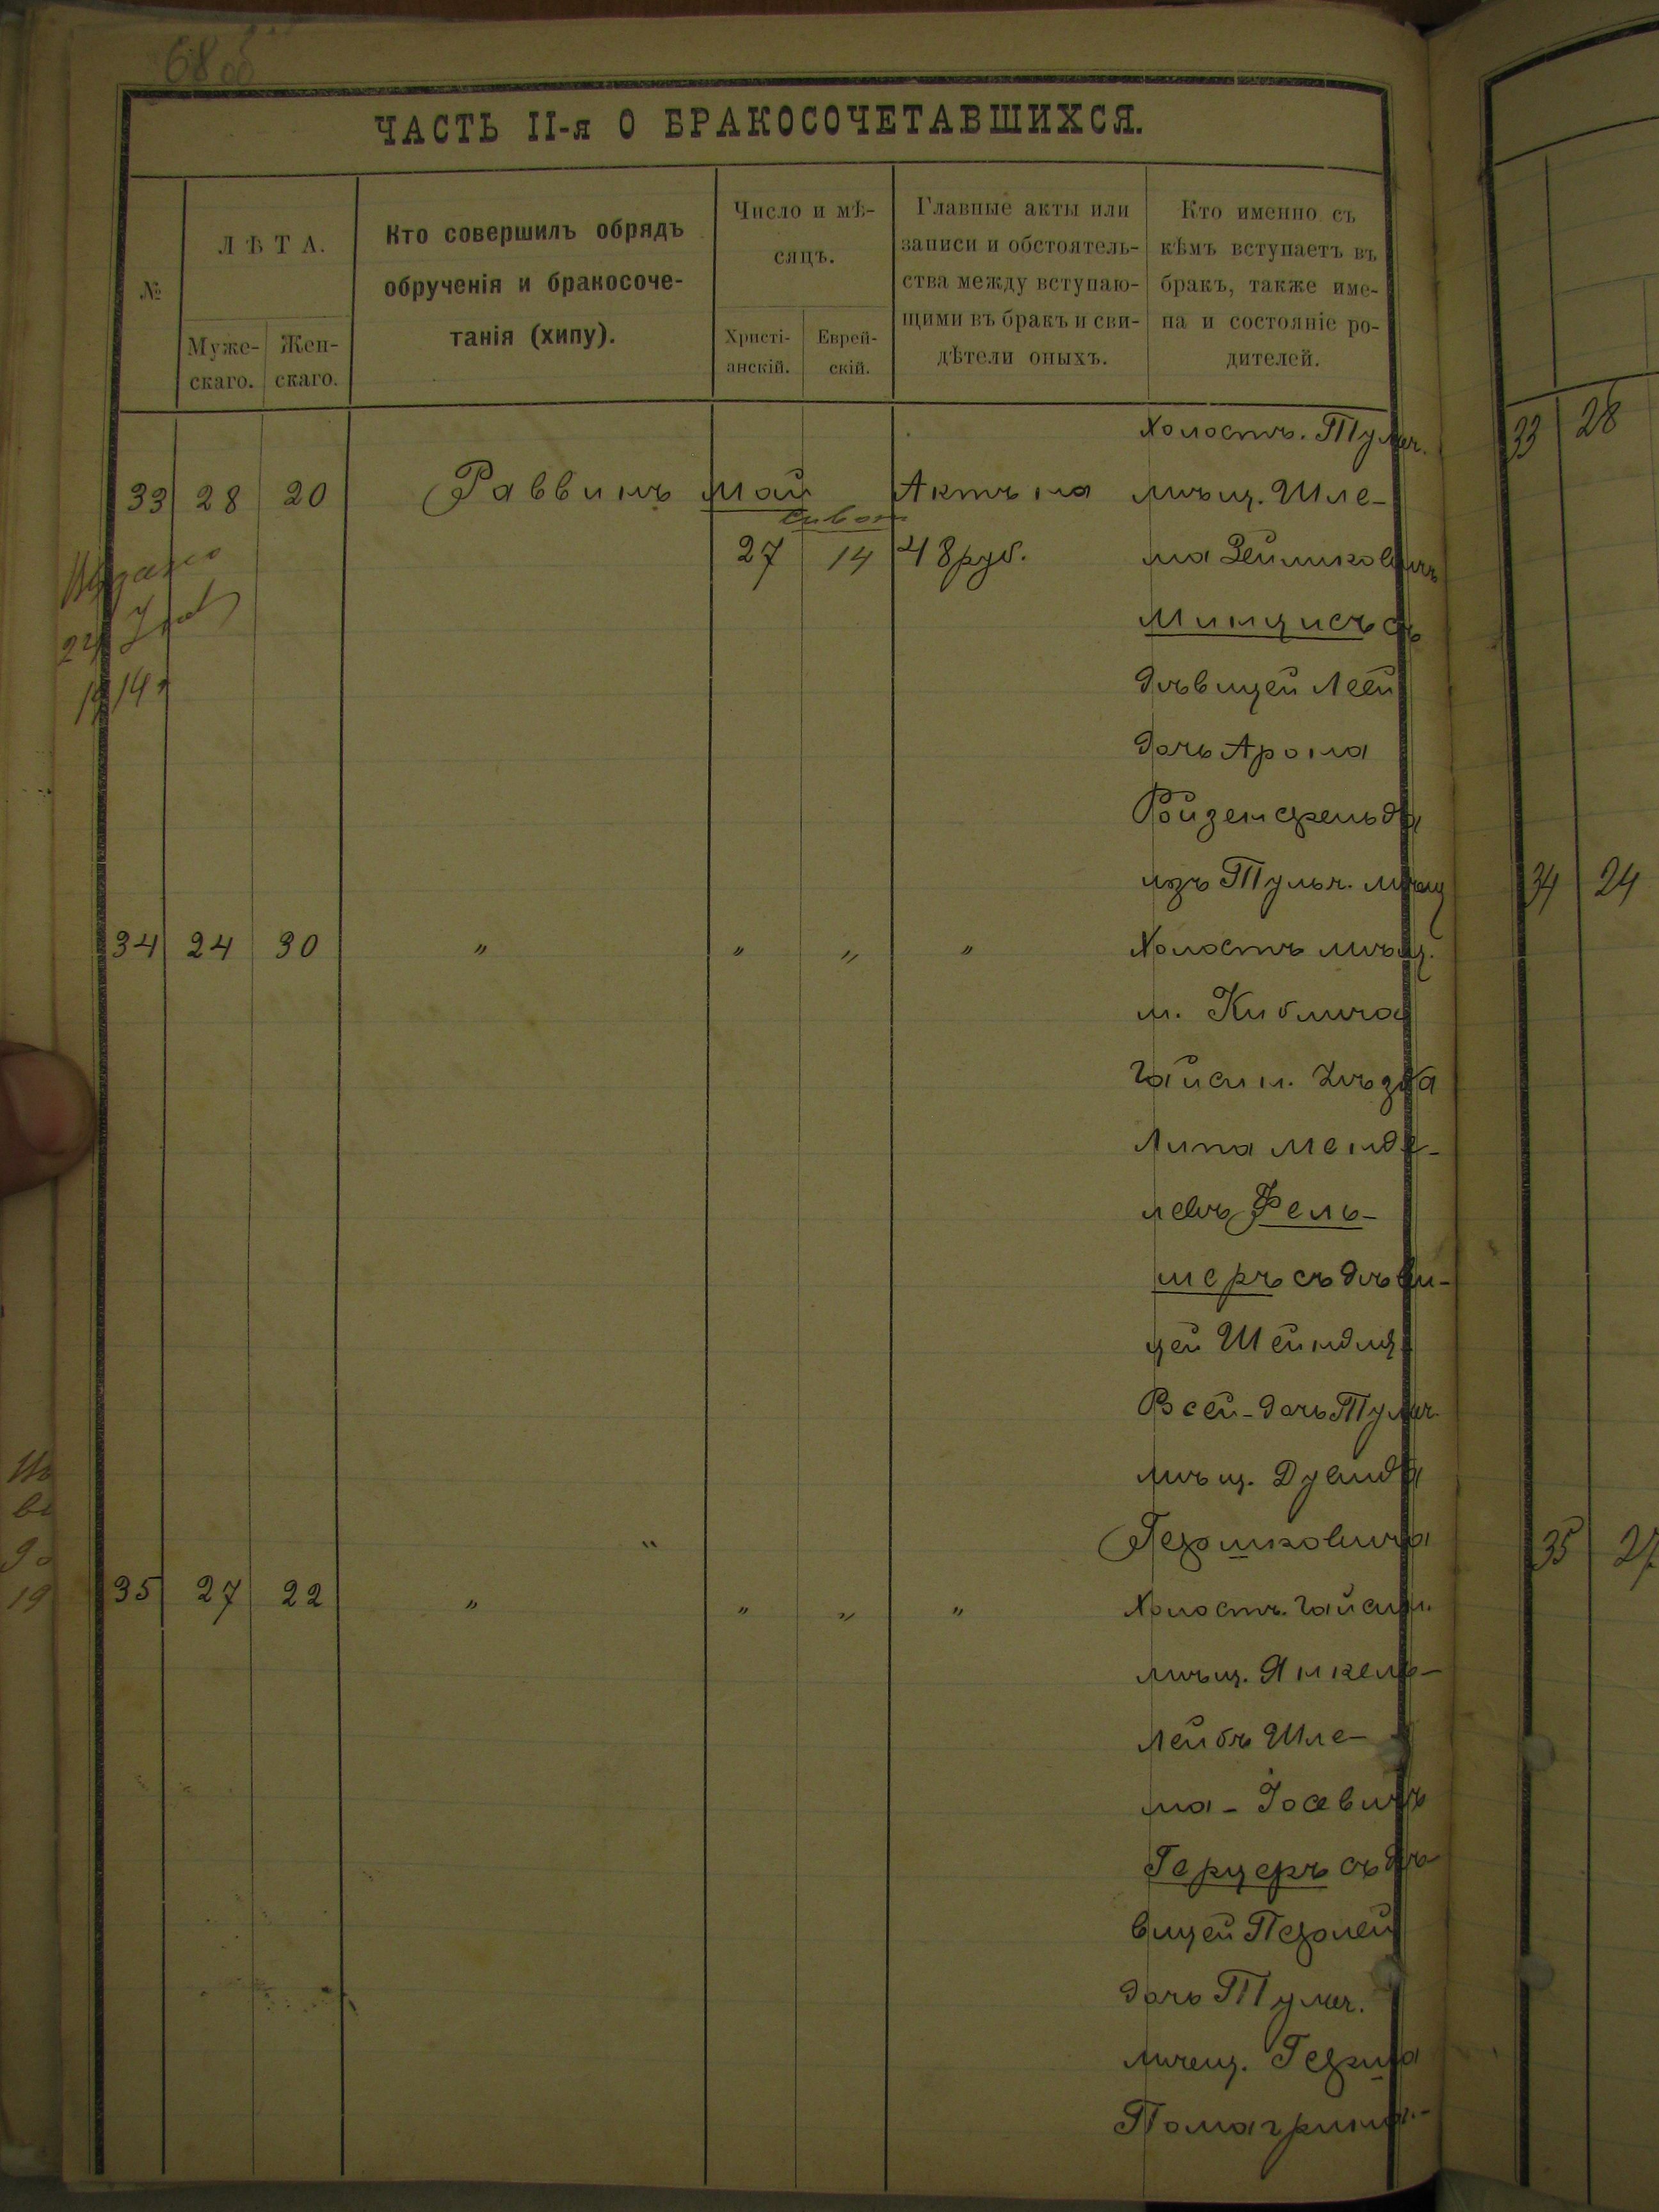 68 об
ЧАСТЬ II-я О БРАКОСОЧЕТАВШИХСЯ.
№
ЛѢТА.
Муже-
скаго.
Жен-
скаго.
Кто совершилъ обрядъ
обрученія и бракосоче-
танія (хипу).
Число и мѣ-
сяцъ.
Христі-
анскій.
Еврей-
скій.
Главные акты или
записи и обстоятель-
ства между вступаю-
щими въ бракъ и сви-
дѣтели оныхъ.
Кто именно съ
кѣмъ вступаетъ въ
бракъ, также име-
на и состояніе ро-
дителей.
33 28 20 Раввинъ Май Сивон 27 14
Актъ на
48 руб.
Холостъ. Тульч.
мѣщ. Шле-
ма Зейликовичъ
Минцисъ съ
дѣвицей Леей
дочь Арона
Ройзенфельда
изъ Тульч. мѣщ
Выдано
24
1914 г
34 24 30 " " " "
Холостъ мѣщ.
м. Кублича
Гайсин. уѣзда
Липа Менде-
левъ Фель-
шеръ съ дѣви-
цей Шейндля
Бсей-дочь Тульч.
мѣщ. Дувида
Гершковича
35 27 22 " " " " "
Холостъ. Гайсин.
мѣщ. Янкель-
Лейбъ Шле-
ма-Іосевичъ
Герцеръ съ дѣ-
вицей Перлей
дочь Тульч.
мѣщ. Герша
Помагрина.-
19
33 28
34 24
35 27